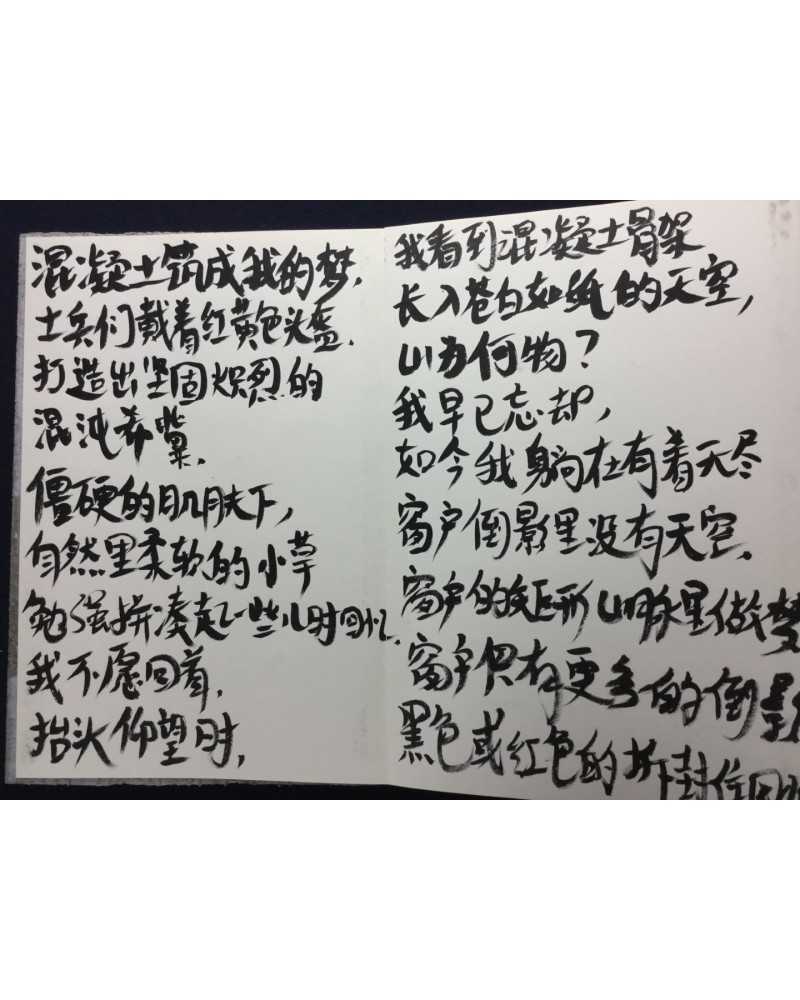 混凝土筑成我的梦,
士兵们戴着红黄色头盔.
打造出坚固炽烈的
混沌希冀.
僵硬的肌肤下,
自然里柔软的小草
勉强拼凑起一些儿时回忆.
我不愿回首,
抬头仰望时,
我看到混凝土骨架
长入苍白如纸的天空,
山为何物?
我早已忘却,
如今我躺在有着无尽
窗户倒影里没有天空.
窗户的矩形山脉里做梦
窗户只有更多的倒影
黑色或红色的 封住